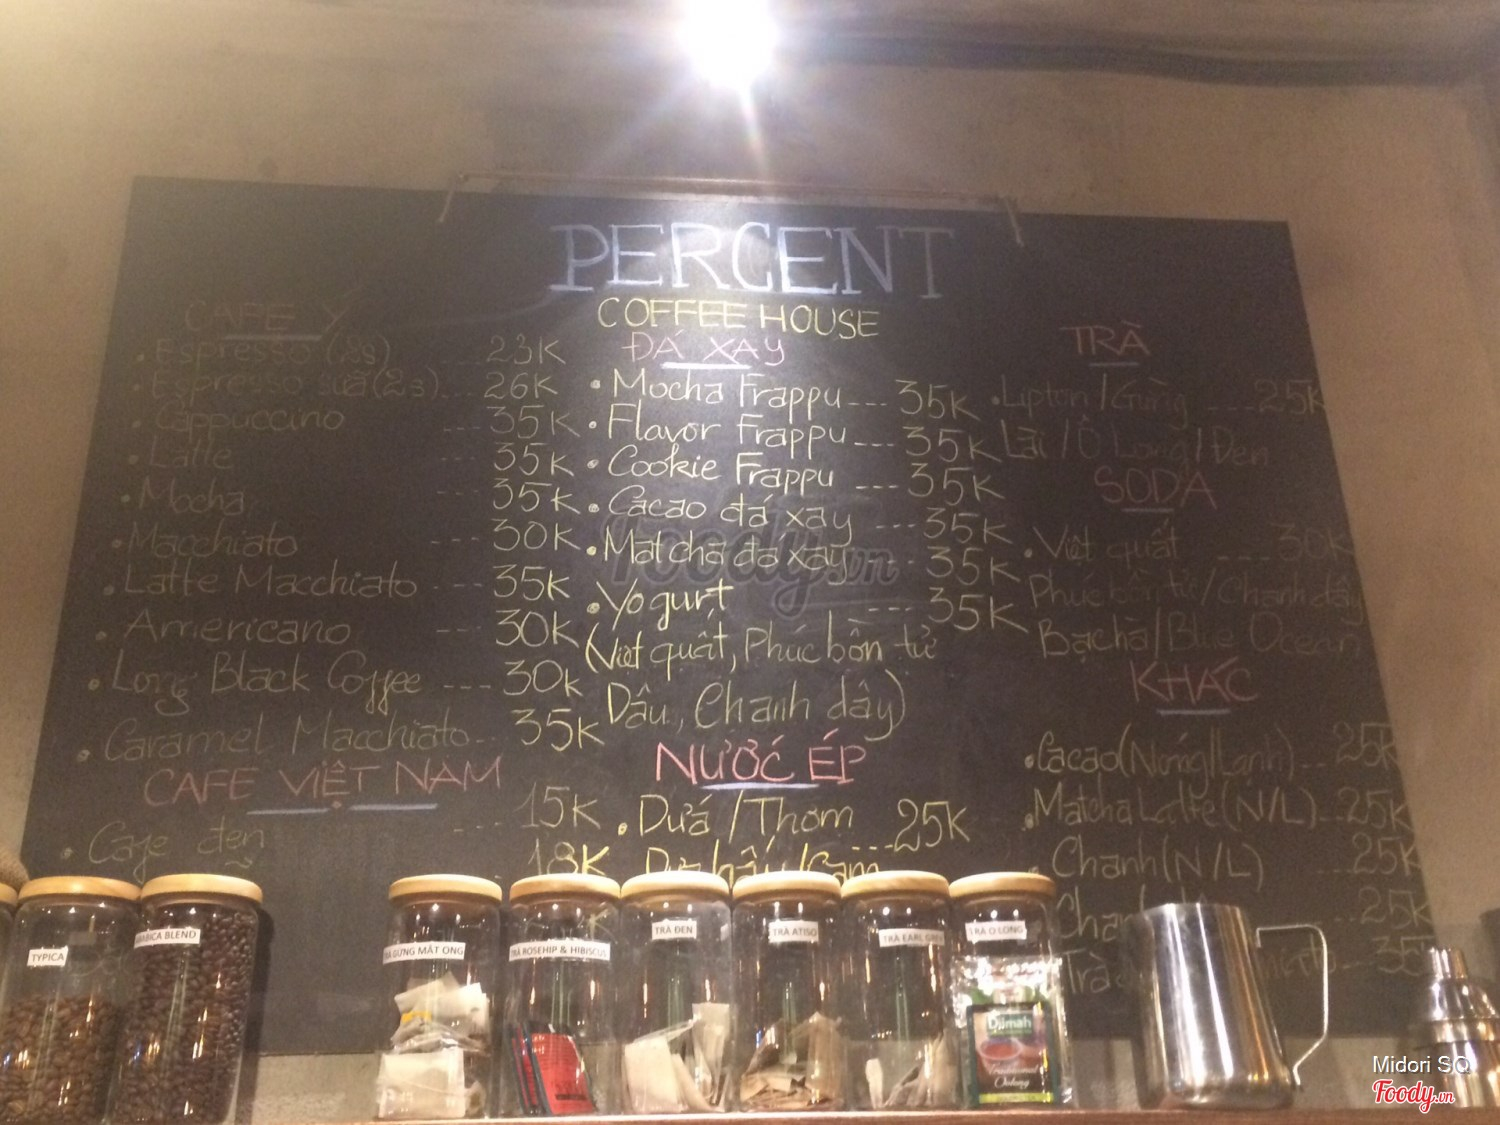 PERCENT
COFFEE HOUSE
CAFE Ý
Espresso (2s) ... 23K
Espresso sữa (2s) ... 26K
Cappuccino ... 35K
Latte ... 35K
Mocha ... 35K
Macchiato ... 30K
Latte Macchiato --- 35K
Americano --- 30K
Long Black Coffee --- 30K
Caramel Macchiato -- 35K
CAFE VIỆT NAM
Cafe đen --- 15K
18K
ĐÁ XAY
Mocha Frappu --- 35K
Flavor Frappu --- 35K
Cookie Frappu --- 35K
Cacao đá xay --- 35K
Matcha đá xay --- 35K
Yogurt --- 35K
(Việt quất, Phúc bồn tử
Dâu, Chanh dây)
NƯỚC ÉP
Dứa / Thơm --- 25K
Dưa hấu / Cam
TRÀ
Lipton / Gừng --- 25K
Lài / Ô Long / Đen
SODA
Việt quất --- 30K
Phúc bồn tử / Chanh dây
Bạc hà / Blue Ocean
KHÁC
Cacao (Nóng/Lạnh) -- 25K
Matcha Latte (N/L) -- 25K
Chanh (N/L) ... 25K
25K
Trà 35K
TYPICA
BLEND
GỪNG MẬT ONG
TRÀ ROSEHIP & HIBISCUS
TRÀ ĐEN
TRÀ ATISO
TRÀ EARL GREY
TRÀ O LONG
Dilmah
Traditional
Oolong
Foody.vn
Midori SQ
Foody.vn